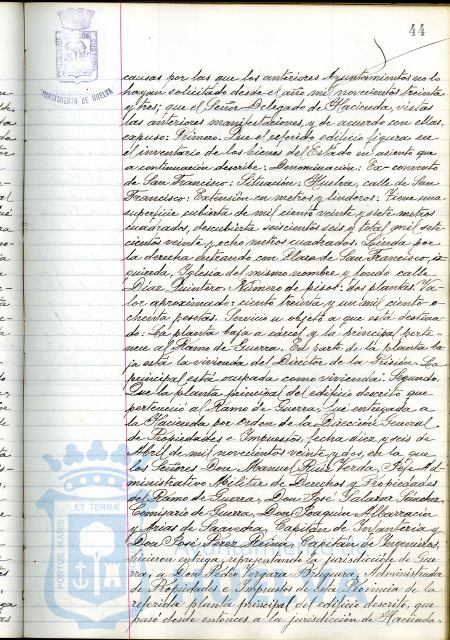 44
AYUNTAMIENTO DE HUELVA
causas por las que los anteriores Ayuntamientos no lo
hayan solicitado desde el año mil novecientos treinta
y tres; que el Señor Delegado de Hacienda, vistas
las anteriores manifestaciones, y de acuerdo con ellas,
expuso: Primero. Que el referido edificio figura en
el inventario de los bienes del Estado en asiento que
a continuación describe: Denominación: Ex-convento
de San Francisco: Situación: Huelva, calle de San
Francisco: Extensión en metros y linderos: Tiene una
superficie cubierta de mil ciento veinte y siete metros
cuadrados, descubierta seiscientos seis y total mil sete-
cientos veinte y ocho metros cuadrados. Linda por
la derecha entrando con Plaza de San Francisco, iz-
quierda, Iglesia del mismo nombre y fondo calle
Diaz Quintero. Número de pisos: dos plantas. Va-
lor aproximado: ciento treinta y un mil ciento o-
chenta pesetas. Servicio u objeto a que está destina-
do: La planta baja a cárcel y la principal perte-
nece al Ramo de Guerra. En parte de la planta ba-
ja está la vivienda del Director de la Prisión. La
principal está ocupada como vivienda: Segundo.
Que la planta principal del edificio descrito que
perteneció al Ramo de Guerra, fué entregada a
la Hacienda por orden de la Dirección General
de Propiedades e Impuestos, fecha diez y seis de
Abril de mil novecientos veinte y dos, en la que
los Señores Don Manuel Ruiz Verda, Jefe Ad-
ministrativo Militar de Derechos y Propiedades
del Ramo de Guerra, Don José Salazar Sánchez,
Comisario de Guerra, Don Joaquin Albarracin
y Arias de Saavedra, Capitán de Infantería y
Don José Pérez Reina, Capitán de Ingenieros,
hicieron entrega, representando la jurisdicción de Gue-
rra, a Don Pedro Vergara Administrador
de Propiedades e Impuestos de esta Provincia de la
referida planta principal del edificio descrito, que
pasó desde entonces a la jurisdicción de Hacienda.
PORTUS MARIS
ET TERRÆ
Ayuntamiento de